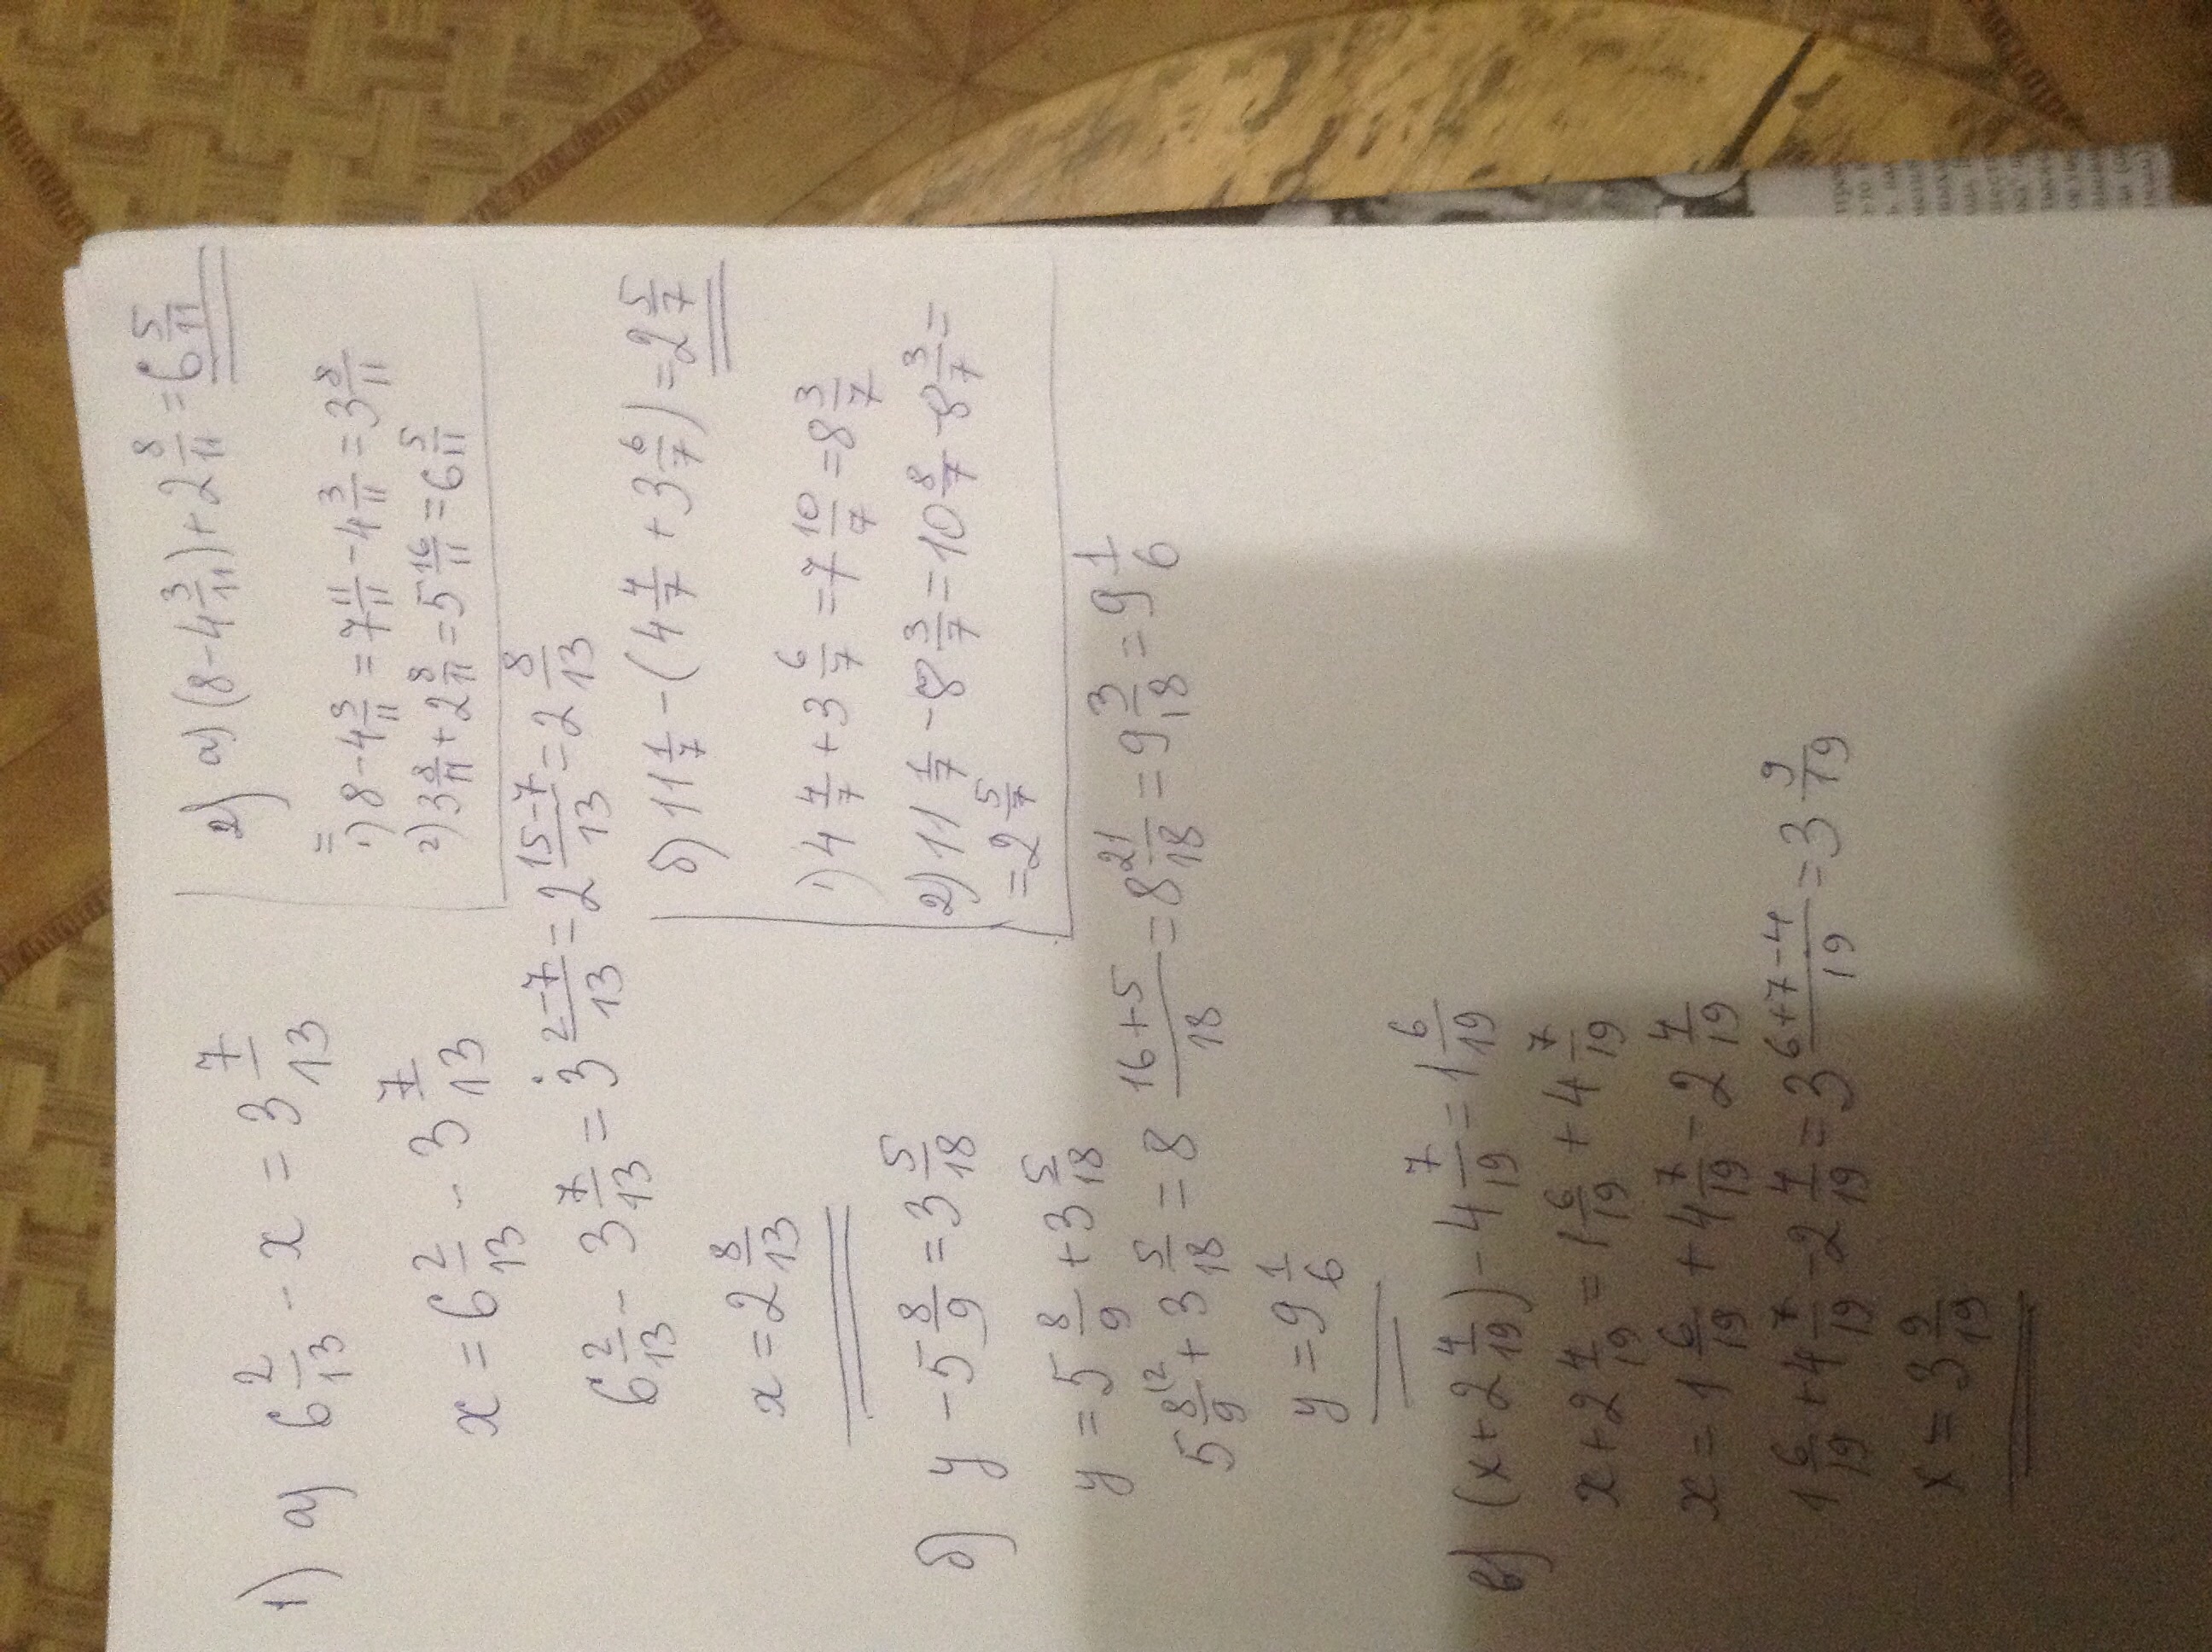 1) а) 6 2/13 - x = 3 7/13
x = 6 2/13 - 3 7/13
6 2/13 - 3 7/13 = 3 2-7/13 = 2 15-7/13 = 2 8/13
x = 2 8/13
б) y - 5 8/9 = 3 5/18
y = 5 8/9 + 3 5/18
5 8/9 /2 + 3 5/18 = 8 16+5/18 = 8 21/18 = 9 3/18 = 9 1/6
y = 9 1/6
в) (x + 2 4/19) - 4 7/19 = 1 6/19
x + 2 4/19 = 1 6/19 + 4 7/19
x = 1 6/19 + 4 7/19 - 2 4/19
1 6/19 + 4 7/19 - 2 4/19 = 3 6+7-4/19 = 3 9/19
x = 3 9/19
2) а) (8 - 4 3/11) + 2 8/11 = 6 5/11
=
1) 8 - 4 3/11 = 7 11/11 - 4 3/11 = 3 8/11
2) 3 8/11 + 2 8/11 = 5 16/11 = 6 5/11
б) 11 1/7 - (4 4/7 + 3 6/7) = 2 5/7
1) 4 4/7 + 3 6/7 = 7 10/7 = 8 3/7
2) 11 1/7 - 8 3/7 = 10 8/7 - 8 3/7 =
= 2 5/7